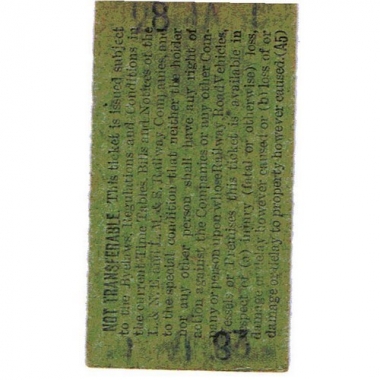 NOT TRANSFERABLE. This ticket is issued subject
to the Byelaws, Regulations and Conditions in
the current Time Tables, Bills and Notices of the
L. & N.E. and L.M. & S. Railway Companies, and
to the special condition that neither the holder
nor any other person shall have any right of
action against the Companies or any other Com-
pany or person upon whose Railway Road Vehicles,
Vessels or Premises this ticket is available in
respect of (a) injury (fatal or otherwise) loss,
damage or delay however caused or (b) loss of or
damage or delay to property however caused. (A5)